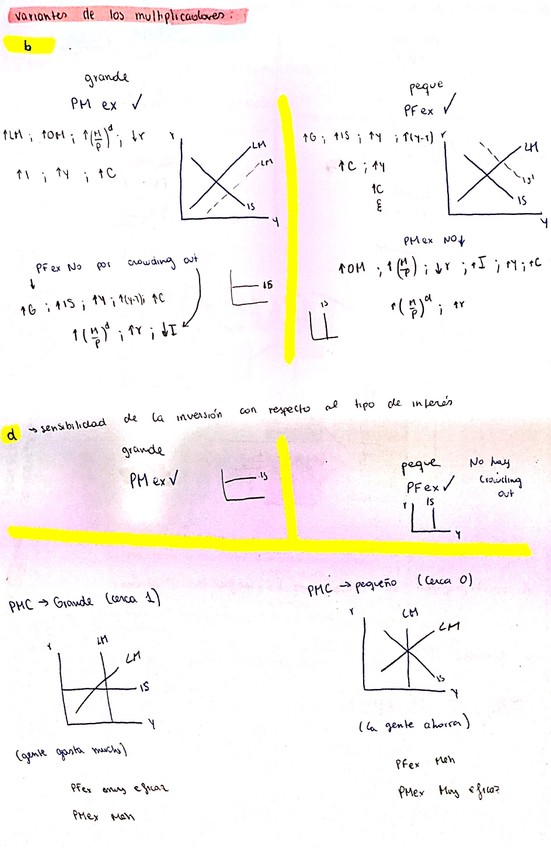 variantes de los multiplicadores:
b
grande
PM ex ✓
↑LM ; ↑OM ; ↑(M/P)ᵈ ; ↓r
↑I ; ↑Y ; ↑C
r
LM
LM
IS
Y
PFex No por crowding out
↓
↑G ; ↑IS ; ↑Y ; ↑(Y-T) ; ↑C
↑(M/P)ᵈ ; ↑r ; ↓I
IS
peque
PFex ✓
↑G ; ↑IS ; ↑Y ; ↑(Y-T)
↑C ; ↑Y
↑C
r
LM
IS'
IS
Y
PMex NO↓
↑OM ; ↑(M/P) ; ↓r ; ↑I ; ↑Y ; ↑C
↑(M/P)ᵈ ; ↑r
IS
d → sensibilidad de la inversión con respecto al tipo de interés
grande
PM ex ✓
IS
peque
PFex ✓
No hay
crowding
out
r
IS
Y
PMC → Grande (cerca 1)
r
LM
LM
IS
Y
(gente gasta mucho)
PFex muy eficaz
PMex Meh
PMC → pequeño (cerca 0)
r
LM
LM
IS
Y
(la gente ahorra)
PFex Meh
PMex Muy eficaz